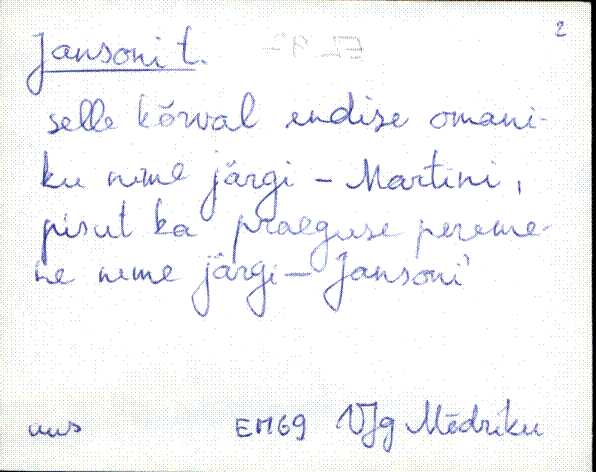 2
Jansoni t.
selle kõrval endise omani-
ku nime järgi – Martini,
pisut ka praeguse pereme-
he nime järgi – Jansoni
uus EM69 VJg Mõdriku